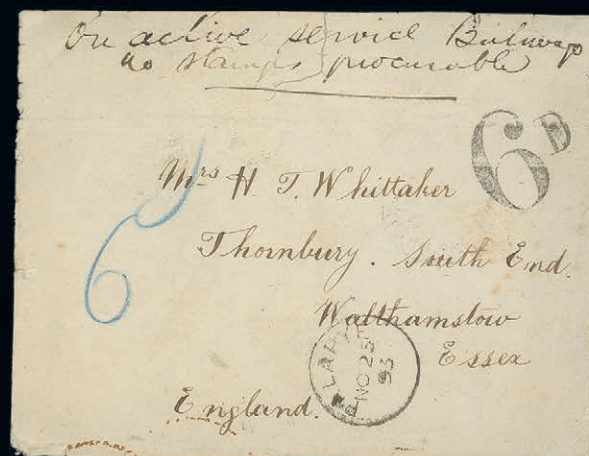 On active service Buluwayo
no stamps procurable
6 D
Mrs H. T. Whittaker
6
Thornbury. South End.
Walthamstow
Essex
NO 25
93
England.